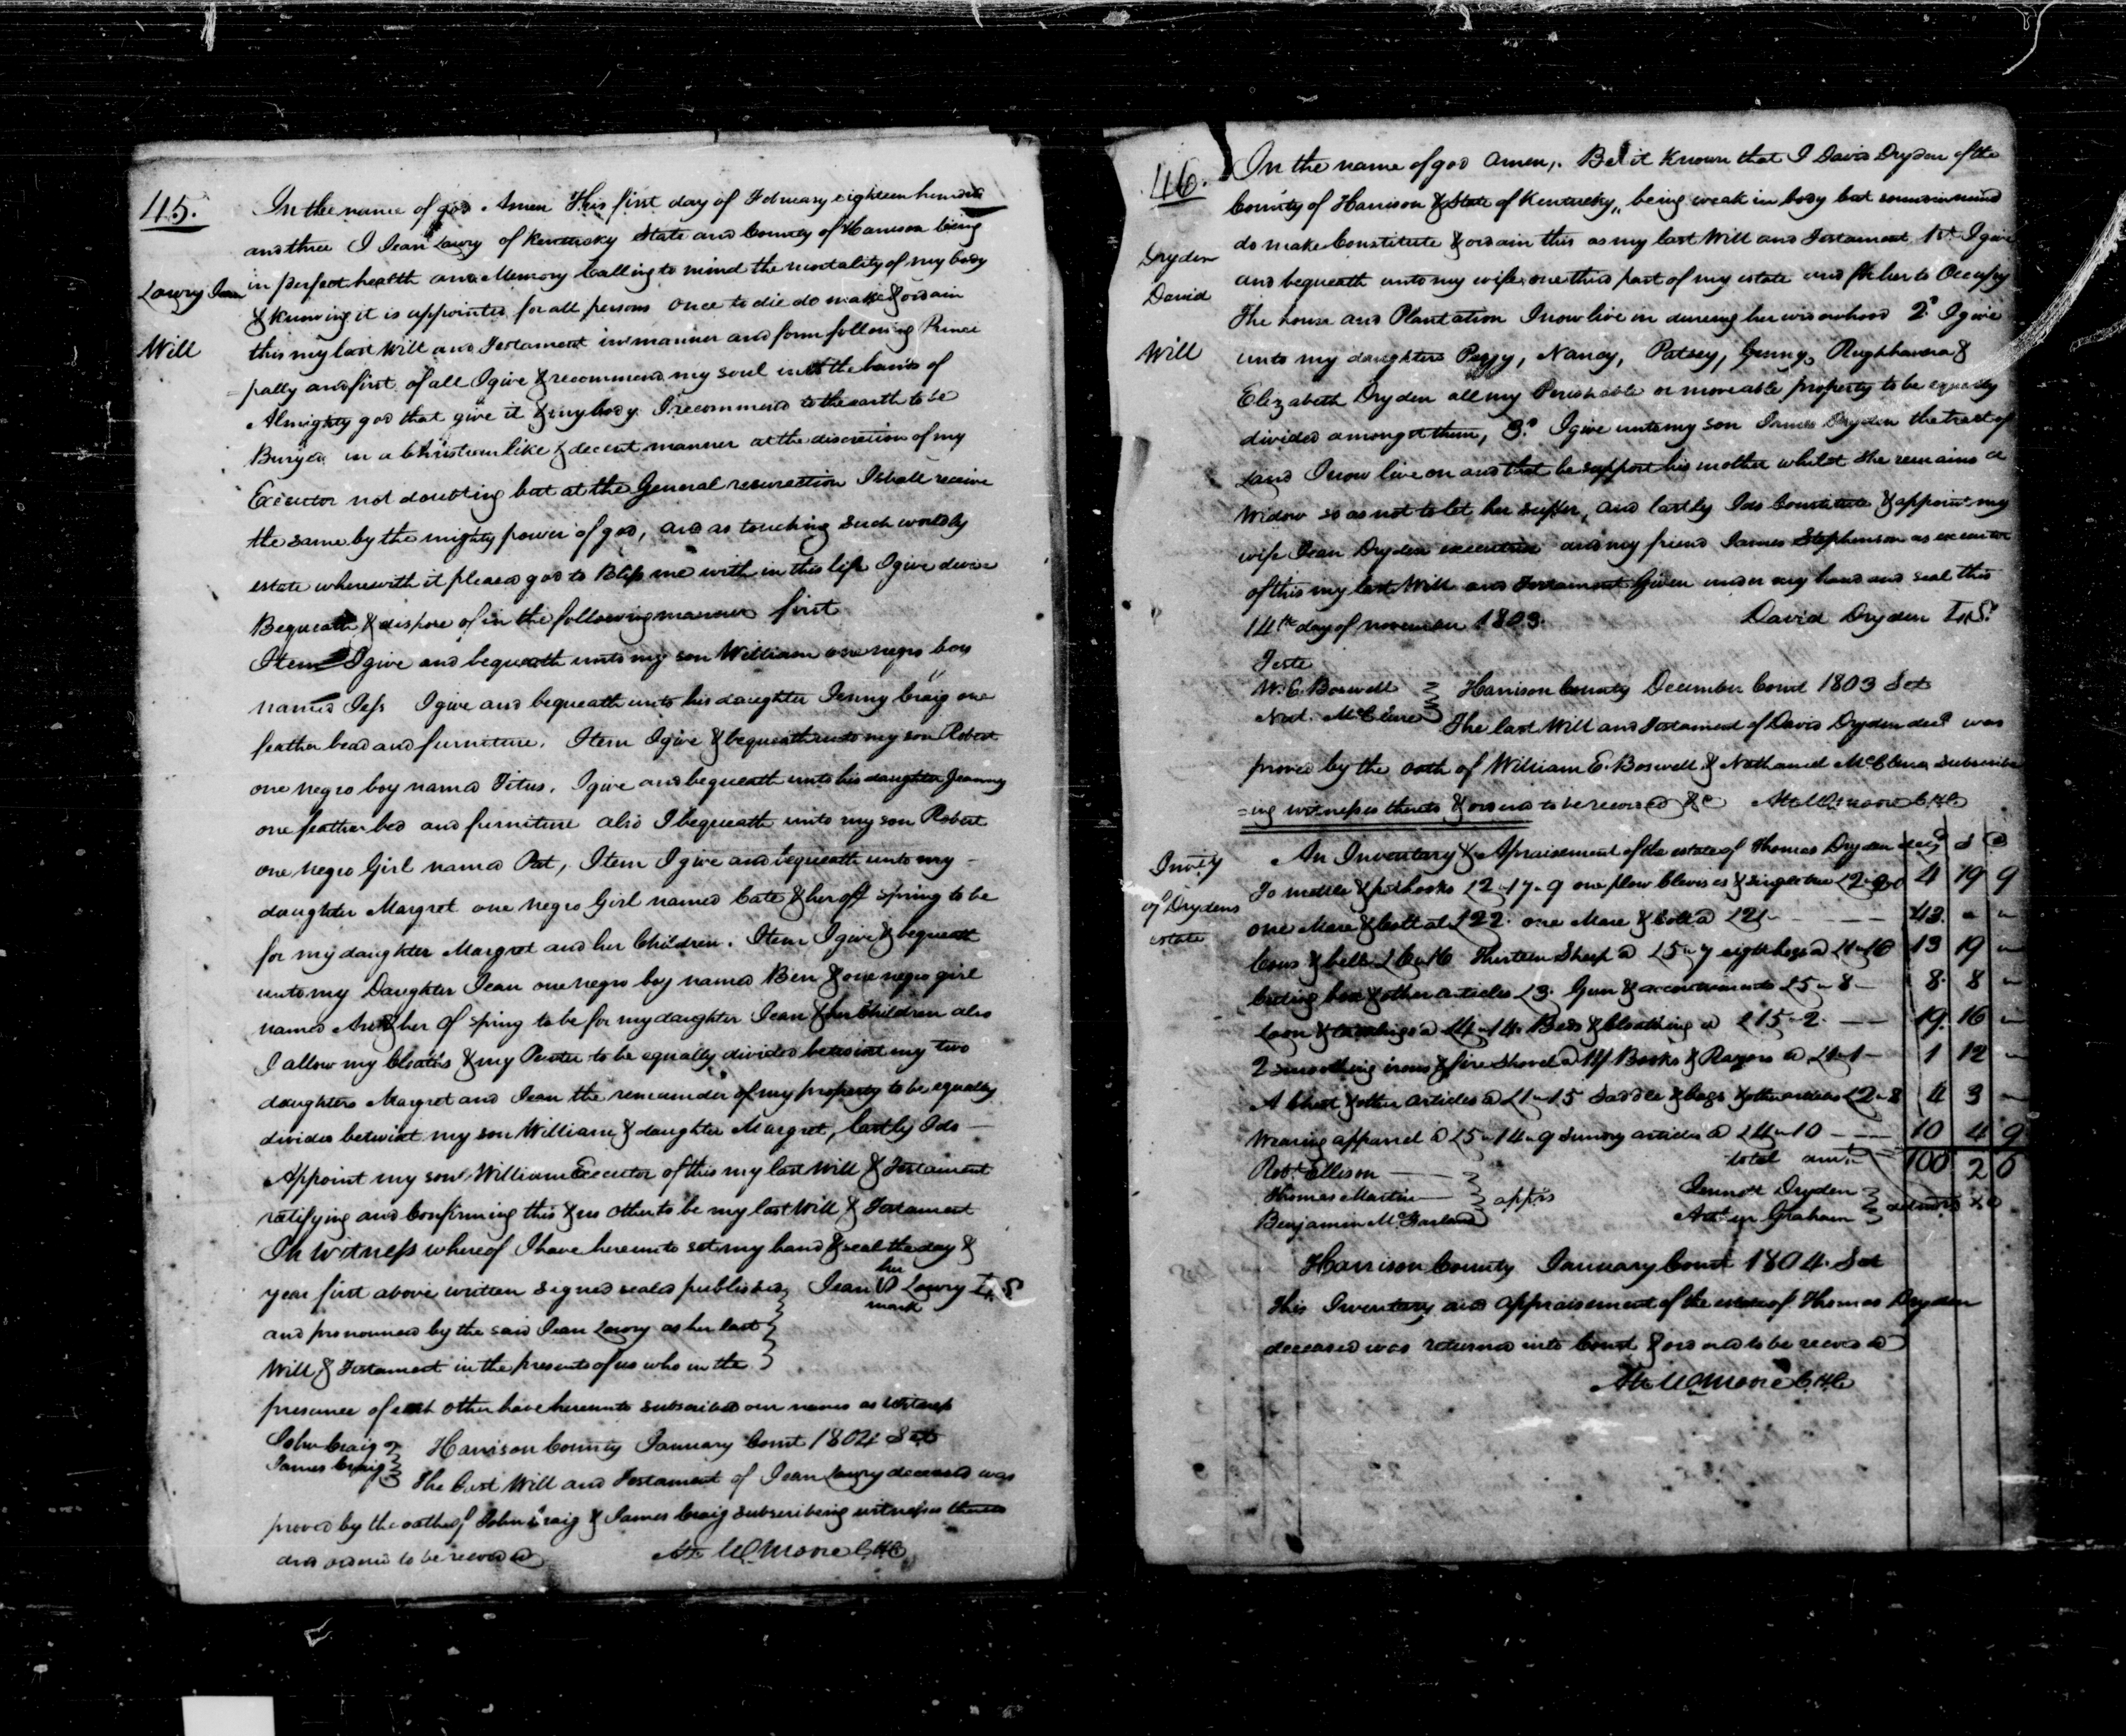 45.
Lowry Jean
Will
In the name of god Amen This first day of February eighteen hundred
and three I Jean Lowry of Kentucky State and County of Harrison being
in perfect health and Memory Calling to mind the mortality of my body
& knowing it is appointed for all persons once to die do make & ordain
this my last Will and Testament in manner and form following Princi
=pally and first of all I give & recommend my soul into the hands of
Almighty god that give it & my body I recommend to the earth to be
Buryed in a Christian like & decent manner at the discretion of my
Executor not doubting but at the General resurection I shall receive
the same by the mighty power of god, and as touching such worldly
estate wherewith it pleasd god to Bless me with in this life I give devise
Bequeath & dispose of in the following manner first
Item I give and bequeath unto my son William one negro boy
named Jess I give and bequeath unto his daughter Jenny Craig one
feather bead and furniture. Item I give & bequeath unto my son Robert
one negro boy named Titus. I give and bequeath unto his daughter Jeanny
one feather bed and furniture also I bequeath unto my son Robert
one negro Girl named Pat, Item I give and bequeath unto my
daughter Margret one negro Girl named Cate & her off spring to be
for my daughter Margret and her Children. Item I give & bequeath
unto my Daughter Jean one negro boy named Ben & one negro girl
named & her of spring to be for my daughter Jean & her Children also
I allow my Cloaths & my Pewter to be equally divided betwixt my two
daughters Margret and Jean the remainder of my property to be equally
divided betwixt my son William & daughter Margret, lastly I do
Appoint my son William Executor of this my last Will & Testament
ratifying and Confirming this & no other to be my last Will & Testament
In Witness whereof I have hereunto set my hand & seal the day &
year first above written Signed seald published Jean her mark Lowry L,S
and pronounced by the said Jean Lowry as her last
Will & Testament in the presents of us who in the
presence of each other have hereunto subscribed our names as Witness
John Craig
James Craig
Harrison County January Court 1804 Sct
The Last Will and Testament of Jean Lowry deceased was
proved by the oath of John Craig & James Craig subscribeing witnesses thereto
and ordered to be recorded
Atte W Moore C,H,C
46.
Dryden
David
Will
In the name of god amen,. Be it Known that I David Dryden of the
County of Harrison & State of Kentucky, being weak in body but sound in mind
do make Constitute & ordain this as my last Will and Testament 1st I give
and bequeath unto my wife one third part of my estate and for her to Occupy
The house and Plantation I now live on dureing her widowhood 2d I give
unto my daughters Peggy, Nancy, Patsey, Jenny, &
Elizabeth Dryden all my Perishable or moveable property to be equally
divided amongst them, 3d I give unto my son James Dryden the tract of
Land I now live on and that he support his mother whilst she remains a
Widow so as not to let her suffer, and lastly I do Constitute & appoint my
wife Jean Dryden executrix and my friend James Stephenson as executor
of this my last Will and Testament Given under my hand and seal this
14th day of november 1803.
David Dryden L,S.
Teste
W. E. Boswell
Nat. McClure
Harrison County December Court 1803 Sct
The last Will and Testament of David Dryden decd was
proved by the oath of William E. Boswell & Nathaniel McClure Subscribe
=ing witnesses thereto & ordered to be recorded &c Atte W Moore C,H,C
Invty
of Drydens
estate
An Inventory & Apraisement of the estate of Thomas Dryden decd S D
To mattle & pothooks £2-17-9 one plow Clevises & singletree £2-2-0 4 19 9
one Mare & Colt at £22. one Mare & Colt @ £21- 43. - -
Cows & bell £6-16 Thirteen Sheep @ £5-7 eight hogs @ £1-16 13 19 -
Cuting box & other articles £3. Gun & £5-8- 8. 8 -
Loom & @ £4-14. Beds & Cloathing @ £15-2. 19. 16 -
2 smoothing irons & fire Shovel @ 11/ Books & Razors @ £1-1- 1 12 -
A Chest & other articles @ £1-15 Saddle & bags & other articles £2-8 4 3 -
Wearing apparrel @ £5-14-9 Sundry articles @ £4-10 10 4 9
total amt. 100 2 6
Robt. Ellison
Thomas Martin
Benjamin McFarland
apprs
Jennott Dryden
Graham
Harrison County January Court 1804. Sct
This Inventory and appraisement of the estate of Thomas Dryden
deceased was returned into Court & ordered to be recorded
Atte W Moore C,H,C